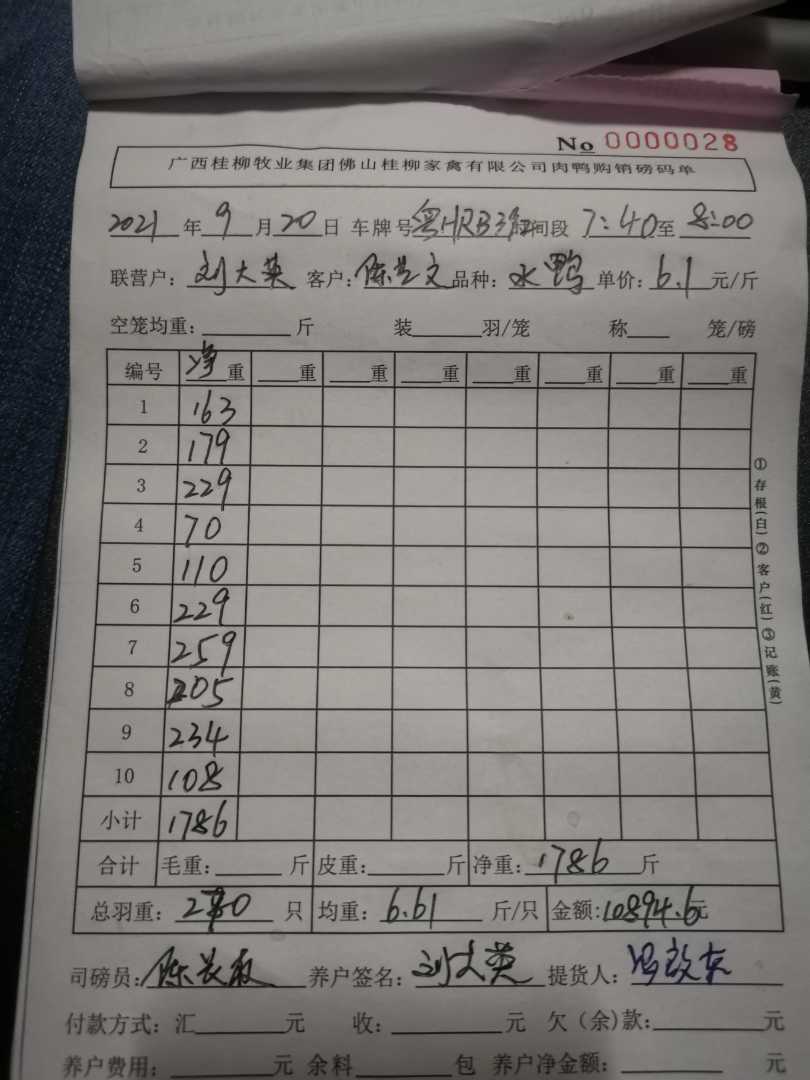 No 0000028
广西桂柳牧业集团佛山桂柳家禽有限公司肉鸭购销磅码单
2021年9月20日 车牌号粤HRB 间段7:40至8:00
联营户:刘大英 客户:陈 文 品种:水鸭 单价:6.1元/斤
空笼均重: 斤 装 羽/笼 称 笼/磅
编号 净重 重 重 重 重 重 重 重
1 163
2 179
3 229
4 70
5 110
6 229
7 259
8 205
9 234
10 108
小计 1786
合计 毛重: 斤 皮重: 斤 净重:1786斤
总羽重:270只 均重:6.61斤/只 金额:10894.6元
司磅员:陈 养户签名:刘大英 提货人:
付款方式:汇 元 收: 元 欠(余)款: 元
养户费用: 元 余料 包 养户净金额: 元
①存根(白)②客户(红)③记账(黄)